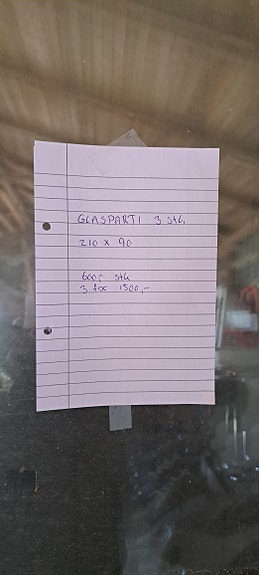 GLASPARTI 3 stk.
210 x 90
600,- stk
3 for 1500,-